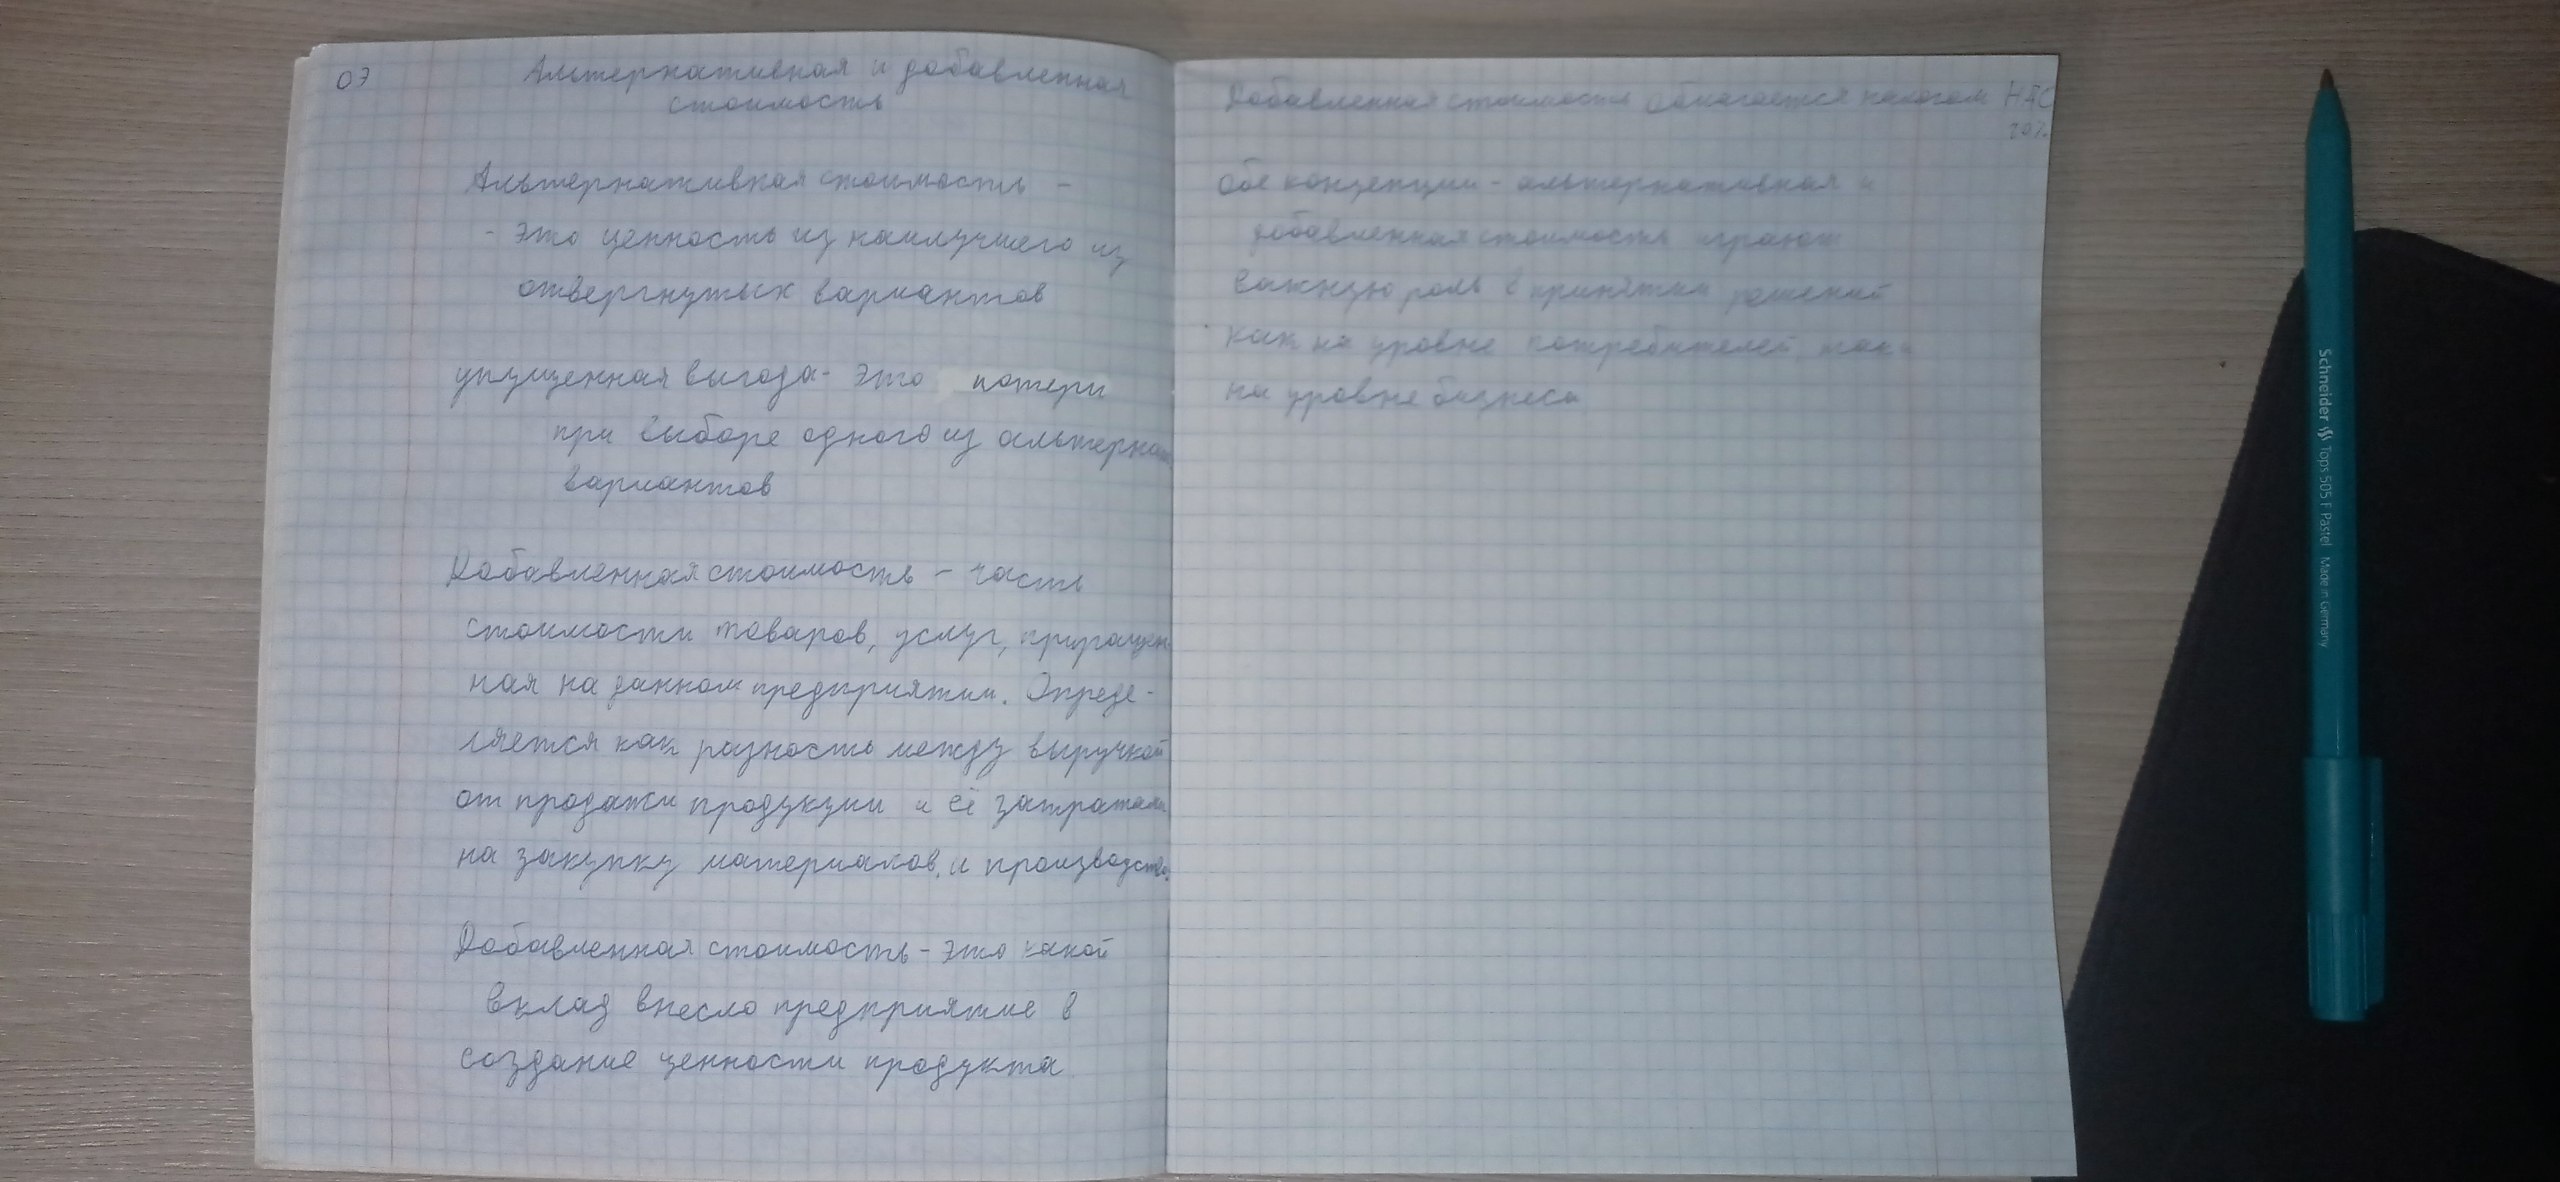 ОЭ
Альтернативная и добавленная
стоимость
Альтернативная стоимость -
- это ценность из наилучшего из
отвергнутых вариантов
упущенная выгода- это потери
при выборе одного из альтернат
вариантов
Добавленная стоимость - часть
стоимости товаров, услуг, приращен-
ная на данном предприятии. Опреде-
ляется как разность между выручкой
от продажи продукции и её затратами
на закупку материалов. и производство.
Добавленная стоимость - это какой
вклад внесло предприятие в
создание ценности продукта
Добавленная стоимость облагается налогом НДС
20%
Обе концепции - альтернативная и
добавленная стоимость играют
важную роль в принятии решений
как на уровне потребителей так и
на уровне бизнеса
Schneider Tops 505 F Pastel Made in Germany